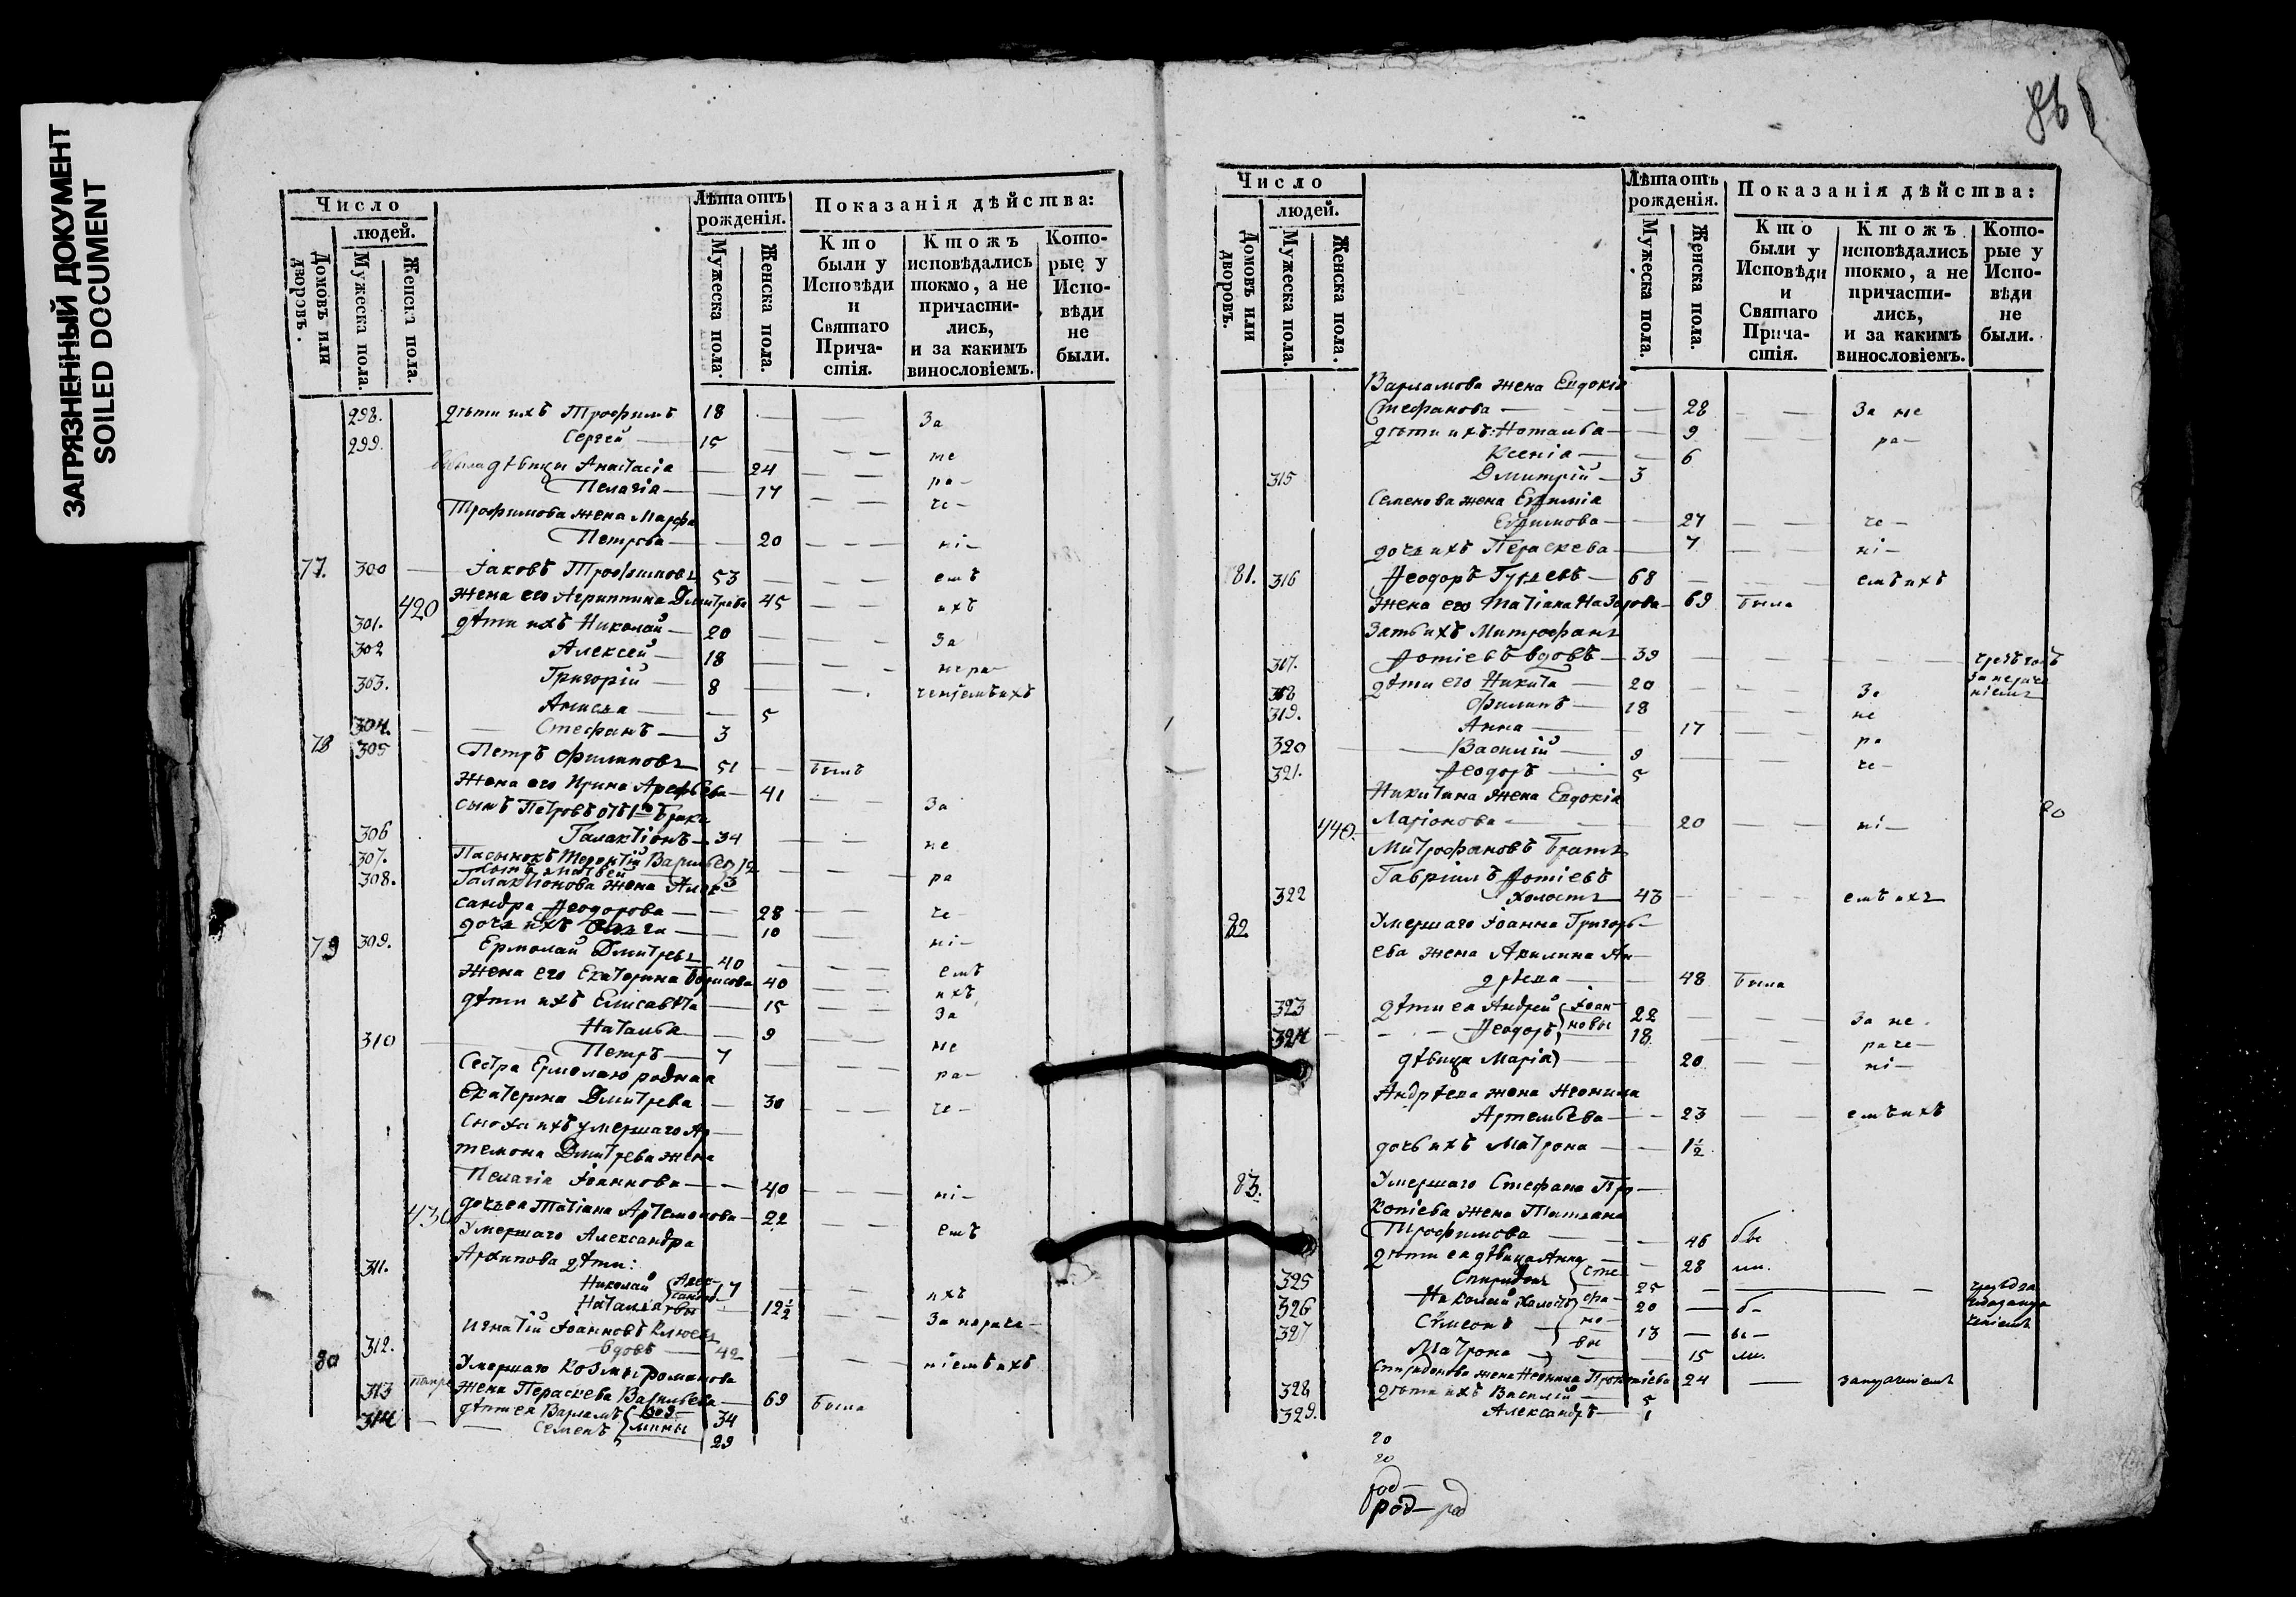 ЗАГРЯЗНЕННЫЙ ДОКУМЕНТ
SOILED DOCUMENT
Число
людей.
Домовъ или дворовъ.
Мужеска пола.
Женска пола.
Лѣта отъ рожденія.
Мужеска пола.
Женска пола.
Показанія дѣйства:
Кто были у Исповѣди и Святаго Причастія.
Ктожъ исповѣдались токмо, а не причастились, и за какимъ винословіемъ.
Которые у Исповѣди не были.
298. дѣти ихъ Трофимъ 18 За
299. Сергей 15 не
дѣвицы Анастасіа 24 ра-
Пелагіа 17 че-
Трофимова жена Марфа
Петрова 20 ні-
77. 300 Іаковъ Трофимовъ 53 емъ
420 жена его Агриппина Дмитрева 45 ихъ
301. дѣти ихъ Николай 20 За
302 Алексей 18 нера-
303. Григорій 8 ченіемъ ихъ
Анисья 5
304. Стефанъ 3
78 305 Петръ Филиповъ 51 былъ
Жена его Ирина Арефьева 41 За
сынъ Петровъ отъ 1го брака
306 Галактіонъ 34 не
307. Пасынокъ Терентій Васильевъ 12 ра
308. сынъ Матвей 3
Галактіонова жена Алек
сандра Ѳеодорова 28 че-
дочь ихъ 10 ні-
79 309. Ермолай Дмитревъ 40 емъ
Жена его Екатерина Борисова 40 ихъ
дѣти ихъ Елисавета 15 За
Наталья 9 не
310 Петръ 7
Сестра Ермолаю родная ра-
Екатерина Дмитрева 30 че-
Сноха ихъ умершаго Ар-
темона Дмитрева жена
Пелагіа Іоаннова 40 ні-
430 дочь ея Татіана Артемонова 22 емъ
Умершаго Александра
Архипова дѣти:
311. Николай Алек- 7 ихъ
Наталья сандро- вы 12½ За нераче-
Игнатій Іоанновъ
312. вдовъ 42 ніемъ ихъ
80 Умершаго Козмы Романова
313 жена Пераскева Васильева 69 была
314 дѣти ея Варламъ Коз- 34
Семенъ мины 29
86
Число
людей.
Домовъ или дворовъ.
Мужеска пола.
Женска пола.
Лѣта отъ рожденія.
Мужеска пола.
Женска пола.
Показанія дѣйства:
Кто были у Исповѣди и Святаго Причастія.
Ктожъ исповѣдались токмо, а не причастились, и за какимъ винословіемъ.
Которые у Исповѣди не были.
Варламова жена Евдокіа
Стефанова 28 За не
дѣти ихъ: Наталья 9 ра-
Ксеніа 6
315 Дмитрій 3
Семенова жена Евфиміа
Ефимова 27 че-
дочь ихъ Пераскева 7 ні-
81. 316 Ѳеодоръ Гурьевъ 68 емъ ихъ
жена его Татіана Назарова 69 была
Зять ихъ Митрофанъ
317. Фотіевъ вдовъ 39
318 дѣти его Никита 20 За
319. Филипъ 18 не
Анна 17 ра
320 Василій 9 че-
321. Ѳеодоръ 5
Никитина жена Евдокіа
440. Ларіонова 20 ні-
Митрофановъ братъ
Гавріилъ Фотіевъ
322 холостъ 43 емъ ихъ
82 Умершаго Іоанна Григорь-
ева жена Акилина Ан-
дрѣева 48 была
323 дѣти ея Андрей Іоан- 22 За не
324 Ѳеодоръ новы 18 раче-
дѣвица Маріа 20 ні-
Андрѣева жена Неонила
Артемьева 23 емъ ихъ
дочь ихъ Матрона 1½
83. Умершаго Стефана Про-
копіева жена Татіана
Трофимова 46 бы
дѣти ея дѣвица Анна 28 ли.
325 Спиридонъ Сте- 25
326 Николай холостъ фа- 20 б-
327 Сѵмеонъ но- 13 ы-
Матрона вы 15 ли.
Спиридонова жена Неонила Прокопіева 24
328 дѣти ихъ Василій 5
329. Александръ 1
20
20
род-
род- род